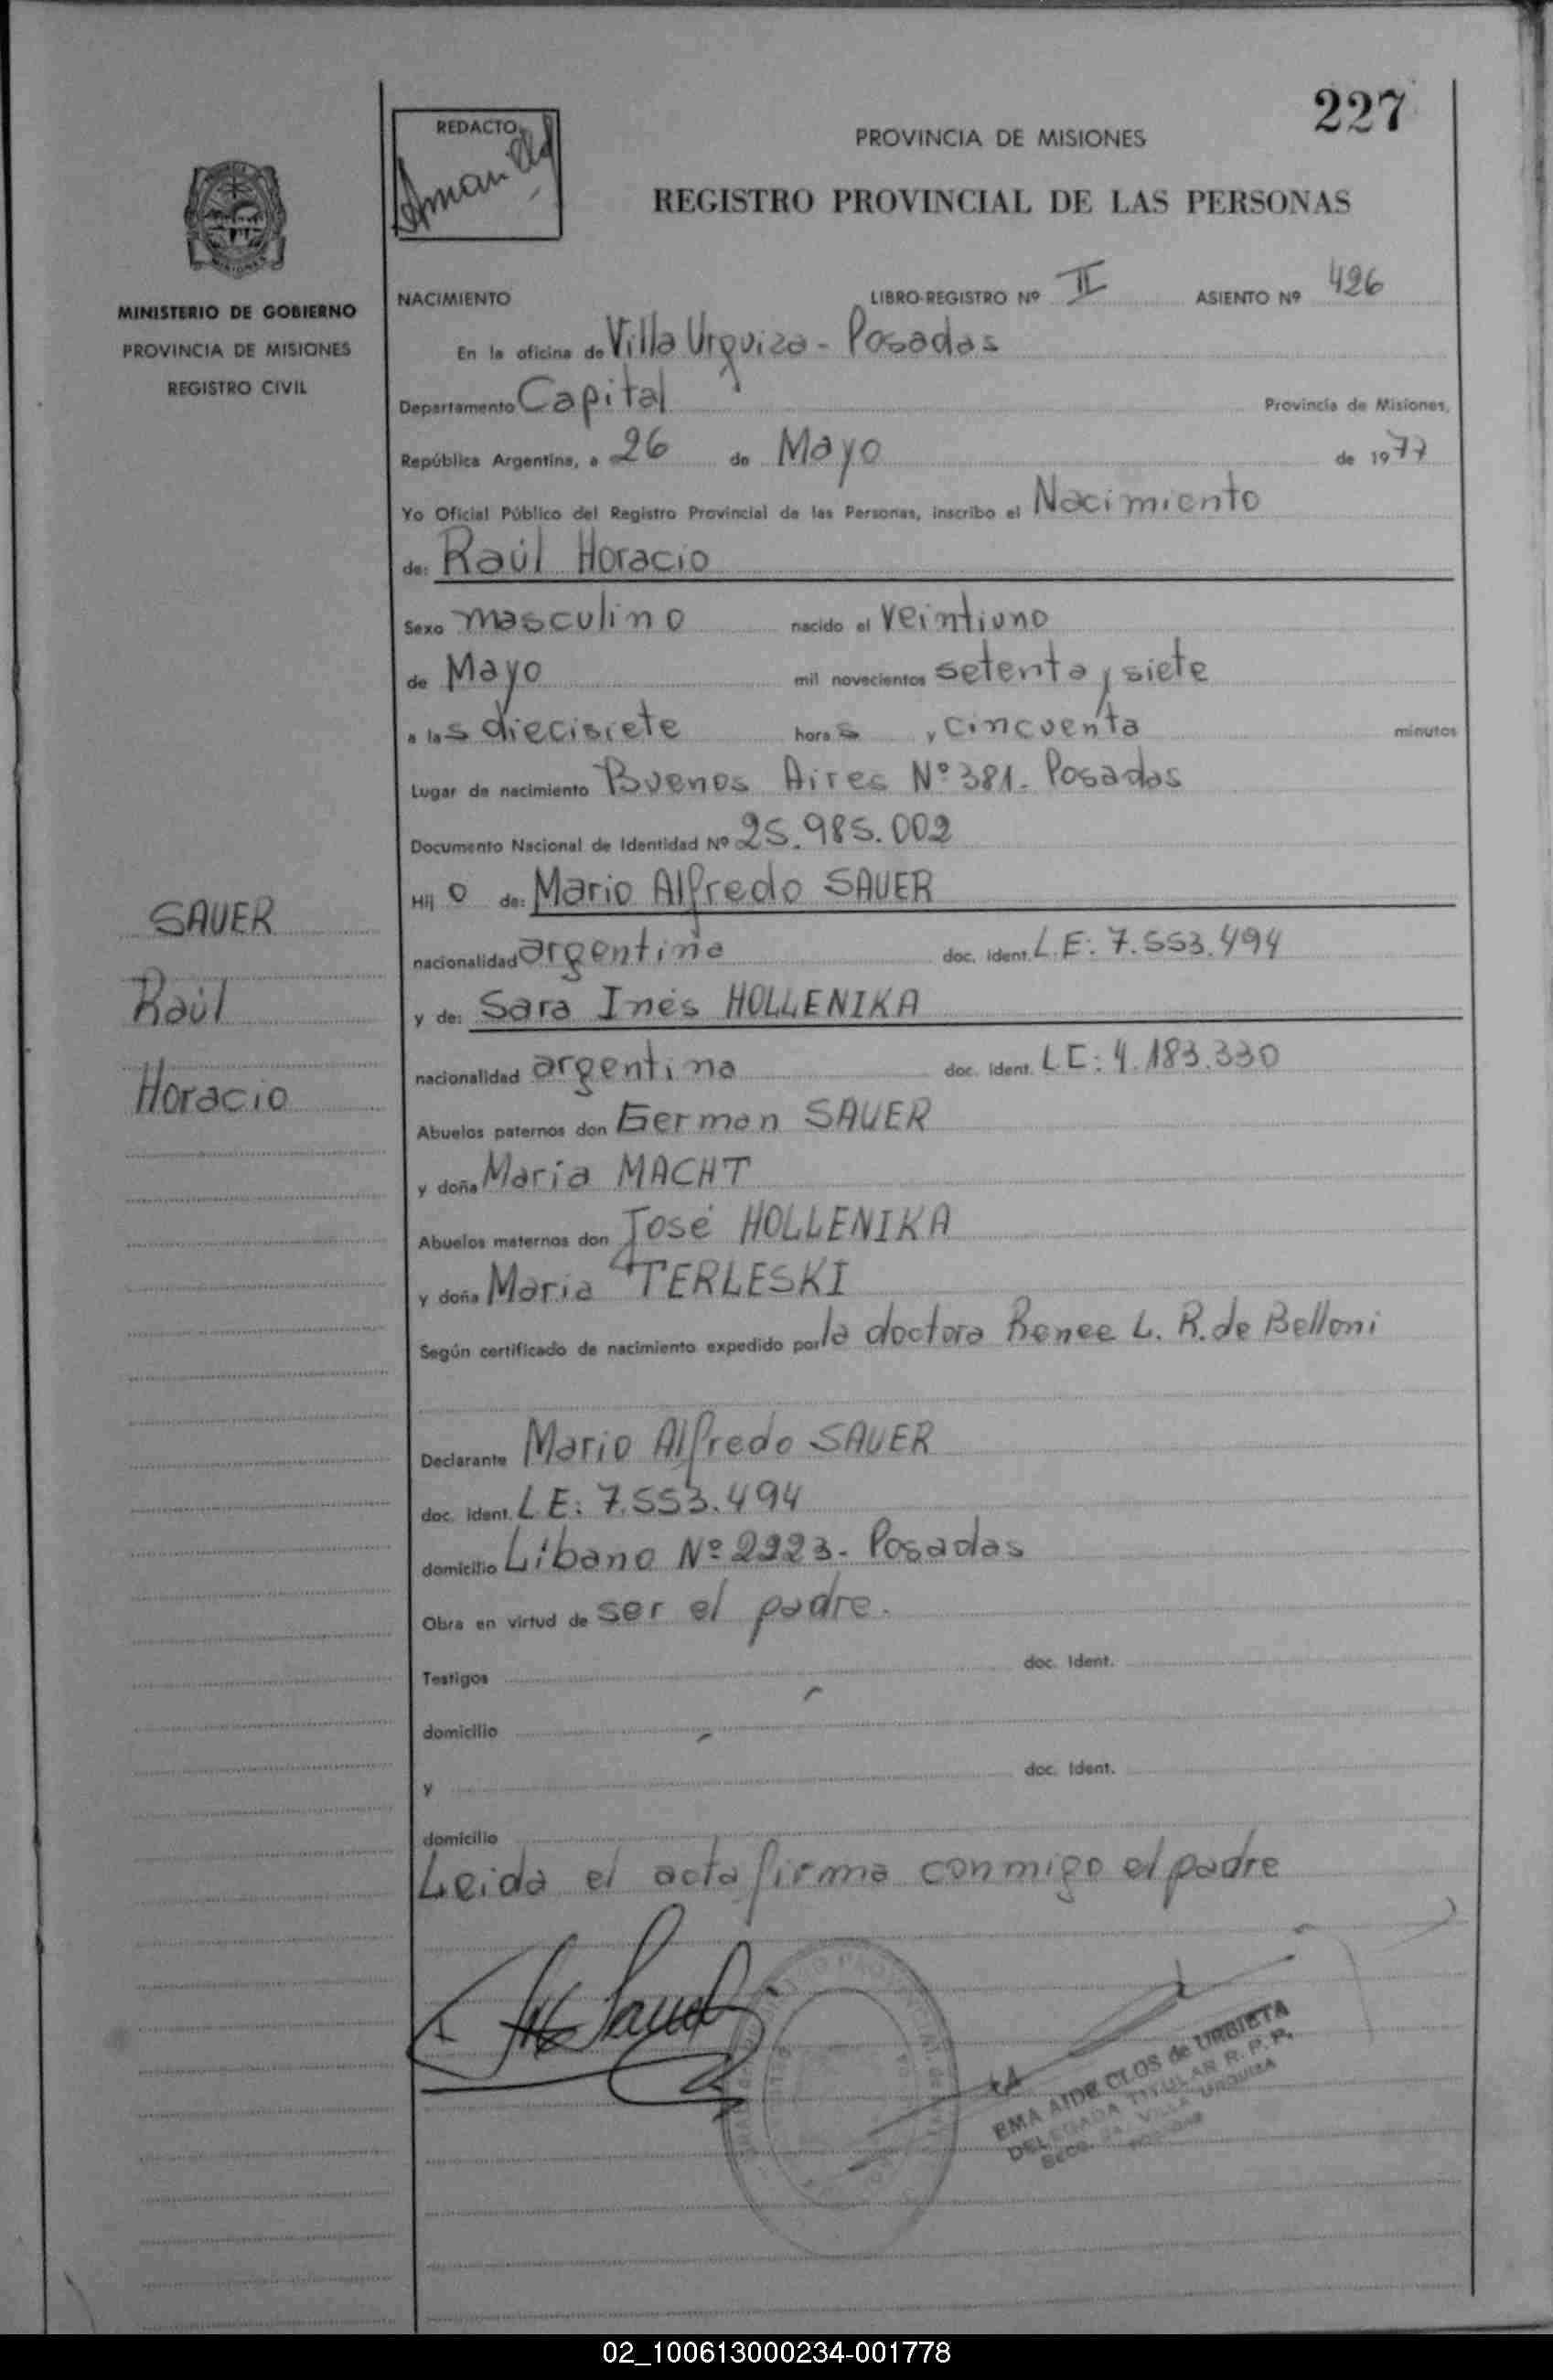 227
REDACTO
Amarilla
PROVINCIA DE MISIONES
REGISTRO PROVINCIAL DE LAS PERSONAS
MISIONES
MINISTERIO DE GOBIERNO
PROVINCIA DE MISIONES
REGISTRO CIVIL
NACIMIENTO LIBRO-REGISTRO Nº II ASIENTO Nº 426
En la oficina de Villa Urquiza - Posadas
Departamento Capital Provincia de Misiones,
República Argentina, a 26 de Mayo de 1977
Yo Oficial Público del Registro Provincial de las Personas, inscribo el Nacimiento
de: Raúl Horacio
Sexo masculino nacido el veintiuno
de Mayo mil novecientos setenta y siete
a las diecisiete horas y cincuenta minutos
Lugar de nacimiento Buenos Aires Nº 381. Posadas
Documento Nacional de Identidad Nº 25.985.002
Hijo de: Mario Alfredo SAUER
nacionalidad argentina doc. ident. L.E: 7.553.494
y de: Sara Inés HOLLENIKA
nacionalidad argentina doc. ident. L.C: 4.183.330
Abuelos paternos don German SAUER
y doña María MACHT
Abuelos maternos don José HOLLENIKA
y doña María TERLESKI
Según certificado de nacimiento expedido por la doctora Renee L. R. de Belloni
Declarante Mario Alfredo SAUER
doc. ident. L E: 7.553.494
domicilio Líbano Nº 2223 - Posadas
Obra en virtud de ser el padre.
Testigos doc. Ident.
domicilio
y doc. Ident.
domicilio
Leida el acta firma conmigo el padre
SAUER
Raúl
Horacio
EMA AIDE CLOS de URBIETA
DELEGADA TITULAR R. P. P.
Secc. VILLA URQUIZA
POSADAS
02_100613000234-001778